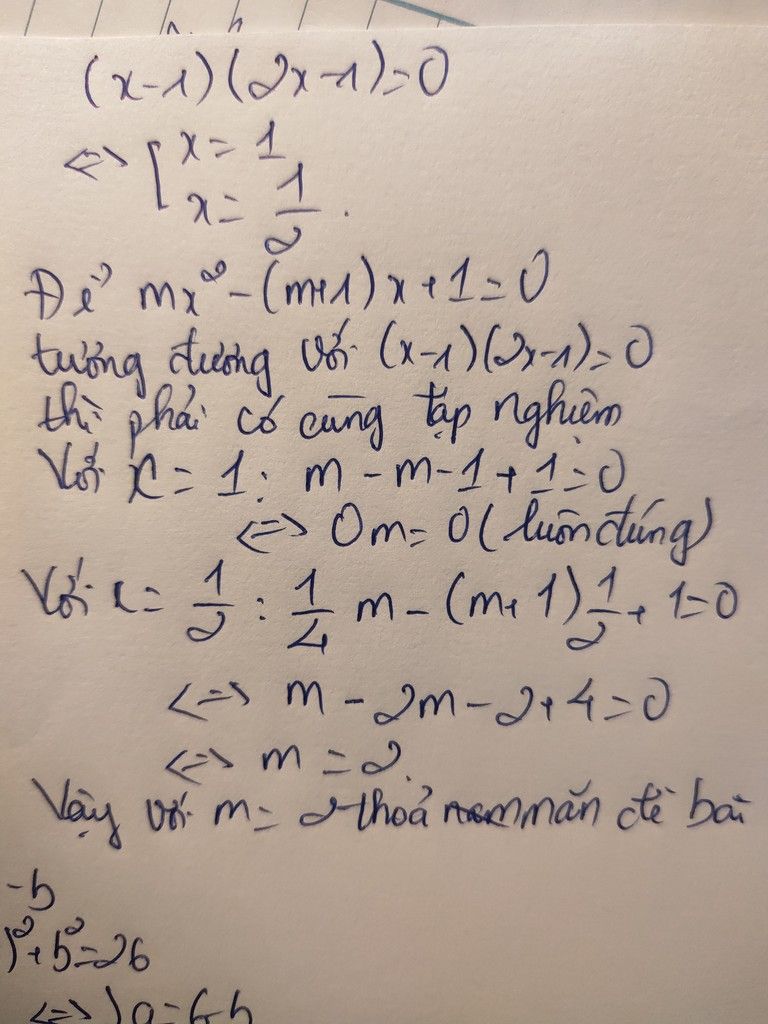 (x-1)(2x-1)=0
<=> [ x = 1
x = 1/2.
Để mx² - (m+1)x + 1 = 0
tương đương với (x-1)(2x-1)=0
thì phải có cùng tập nghiệm
Với x = 1: m - m - 1 + 1 = 0
<=> 0m = 0 (luôn đúng)
Với x = 1/2 : 1/4 m - (m+1) 1/2 + 1 = 0
<=> m - 2m - 2 + 4 = 0
<=> m = 2.
Vậy với m = 2 thoả mãn đề bài
-b
)² + b² = 26
<=> ) a = 6-b